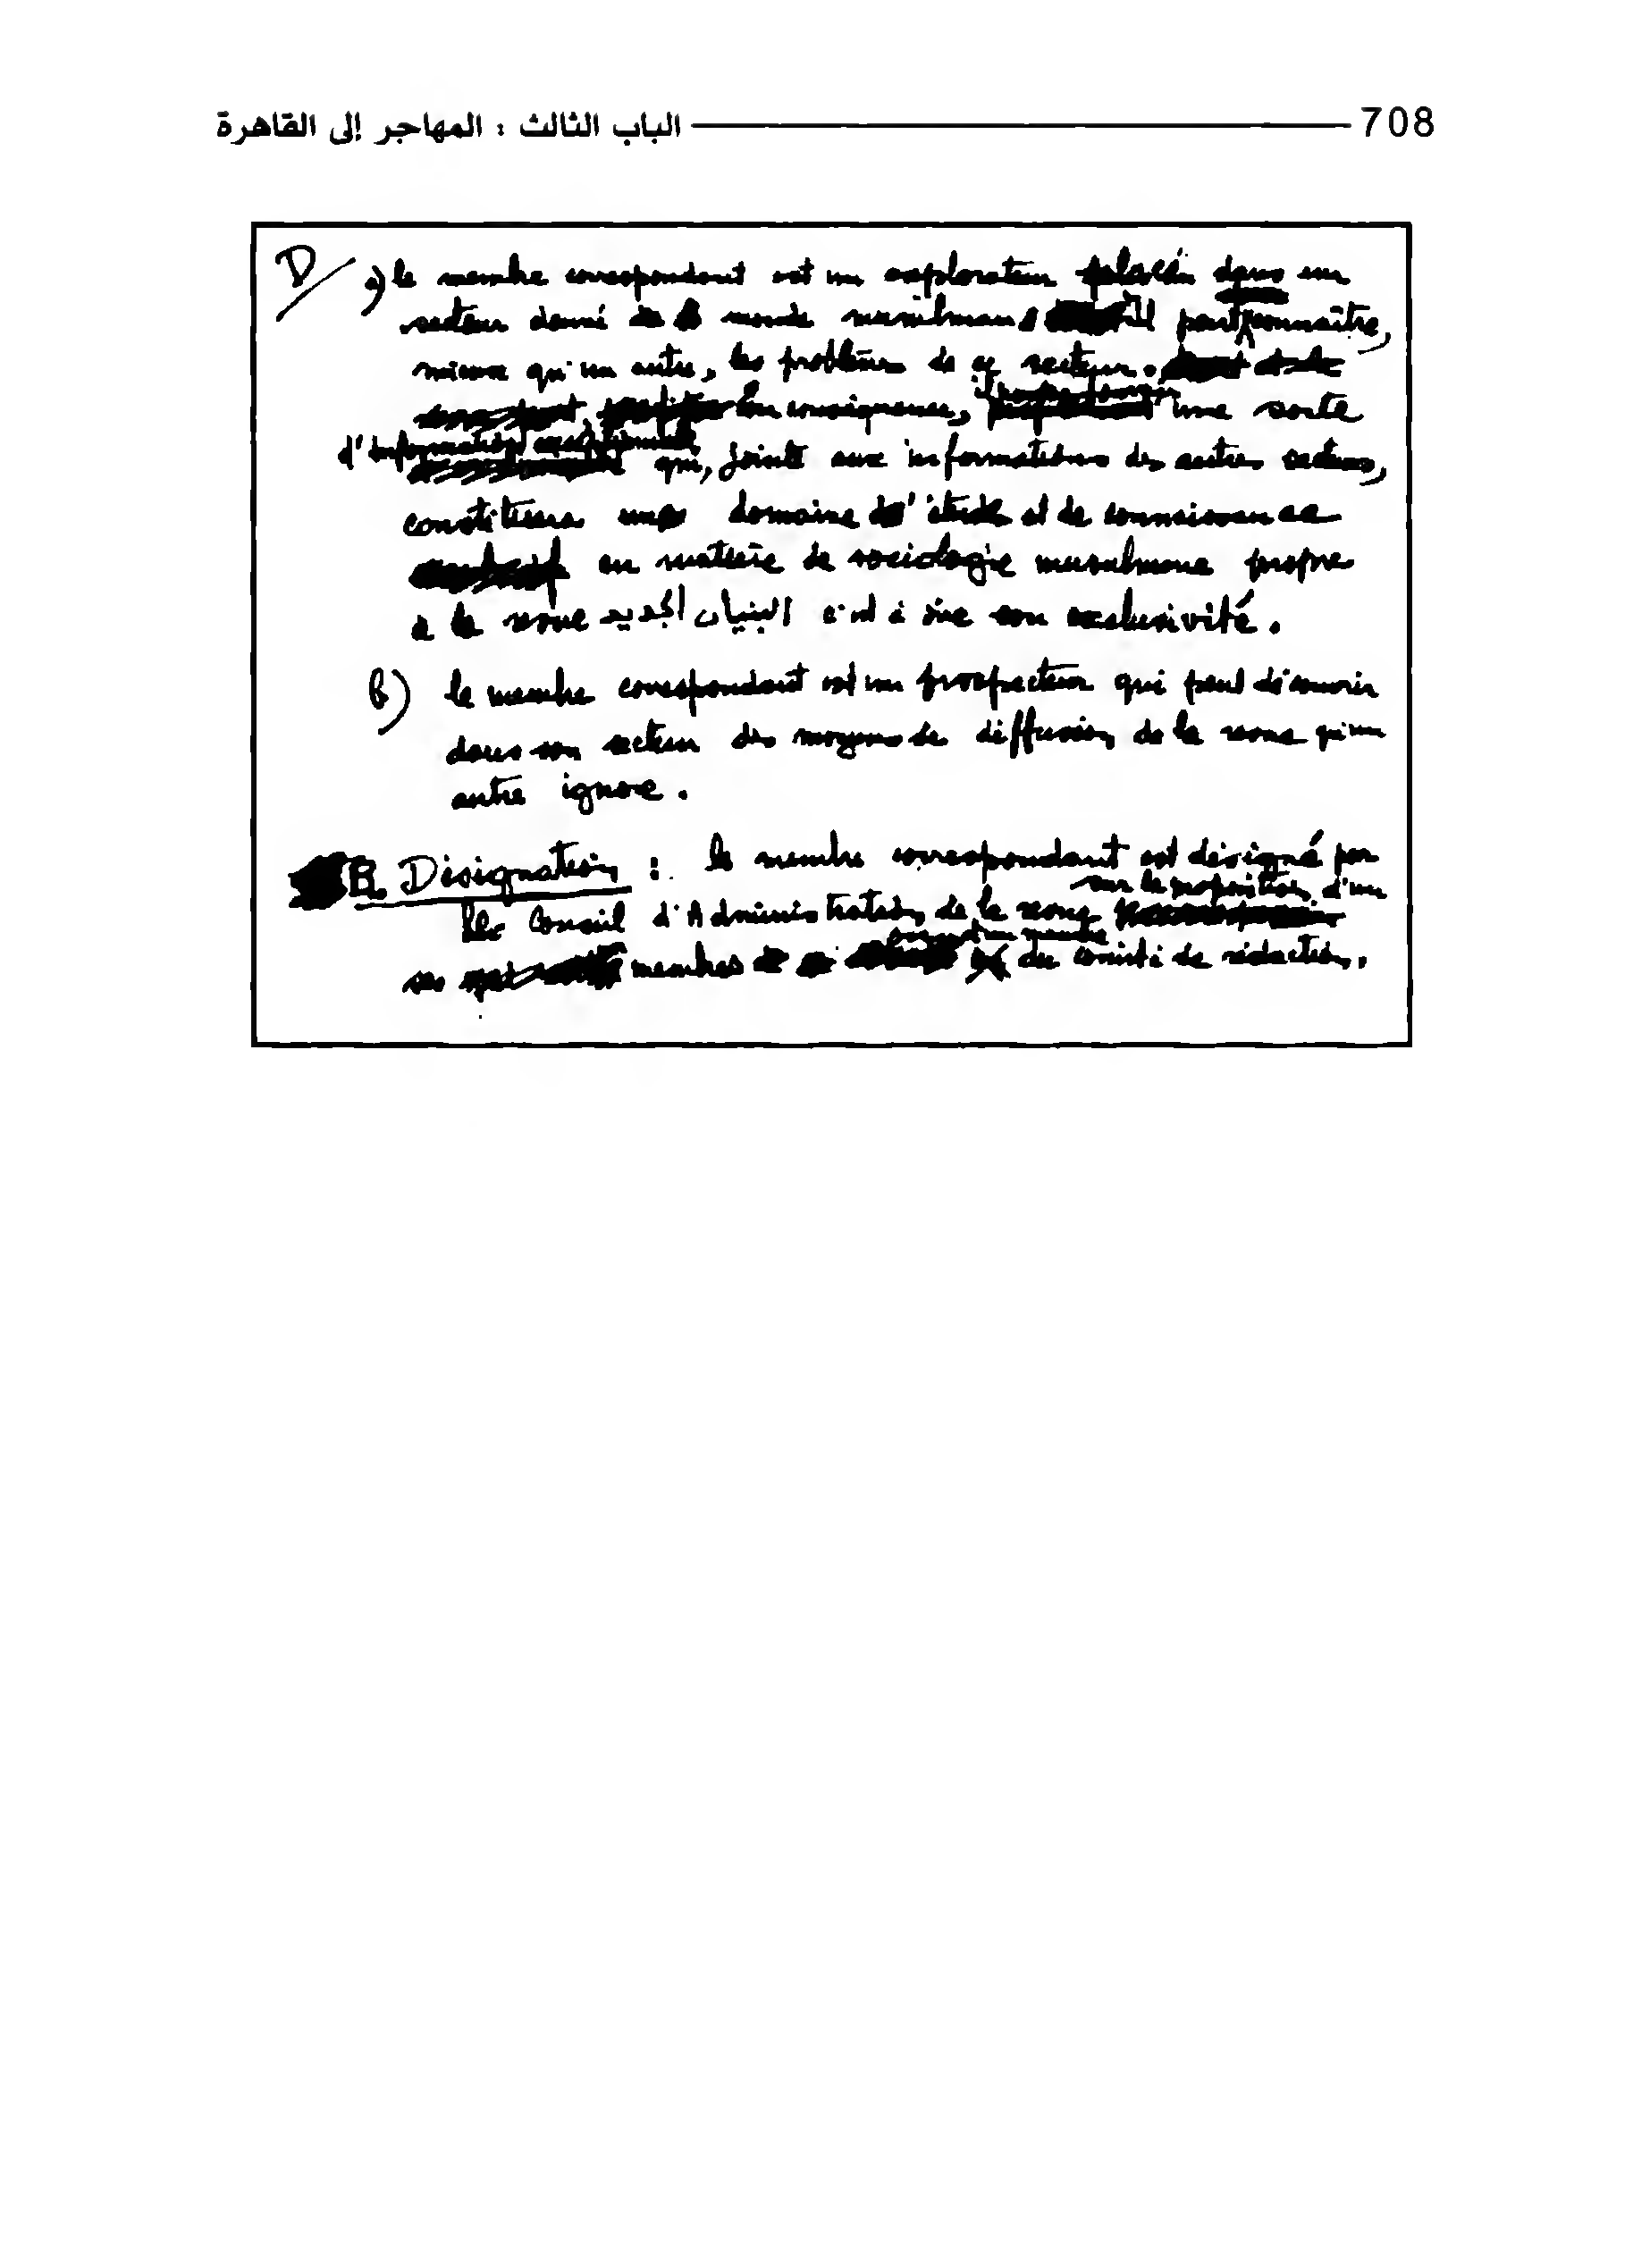 708 الباب الثالث : المهاجر إلى القاهرة
D/ a) le membre correspondant est un explorateur dans un
secteur donné monde musulman Il peut connaître,
mieux qu'un autre, les problèmes de ce secteur.
En conséquence, une sorte
d'information qui, jointe aux informations des autres secteurs,
constituera un domaine d'étude et de connaissance
en matière de sociologie musulmane propre
à la revue البنيان الجديد c'est à dire son exclusivité.
B) le membre correspondant est un prospecteur qui peut découvrir
dans son secteur des moyens de diffusion de la revue qu'un
autre ignore.
B. Désignation : le membre correspondant est désigné par
sur la proposition d'un
le Conseil d'Administration de la revue
ses membres du comité de rédaction.